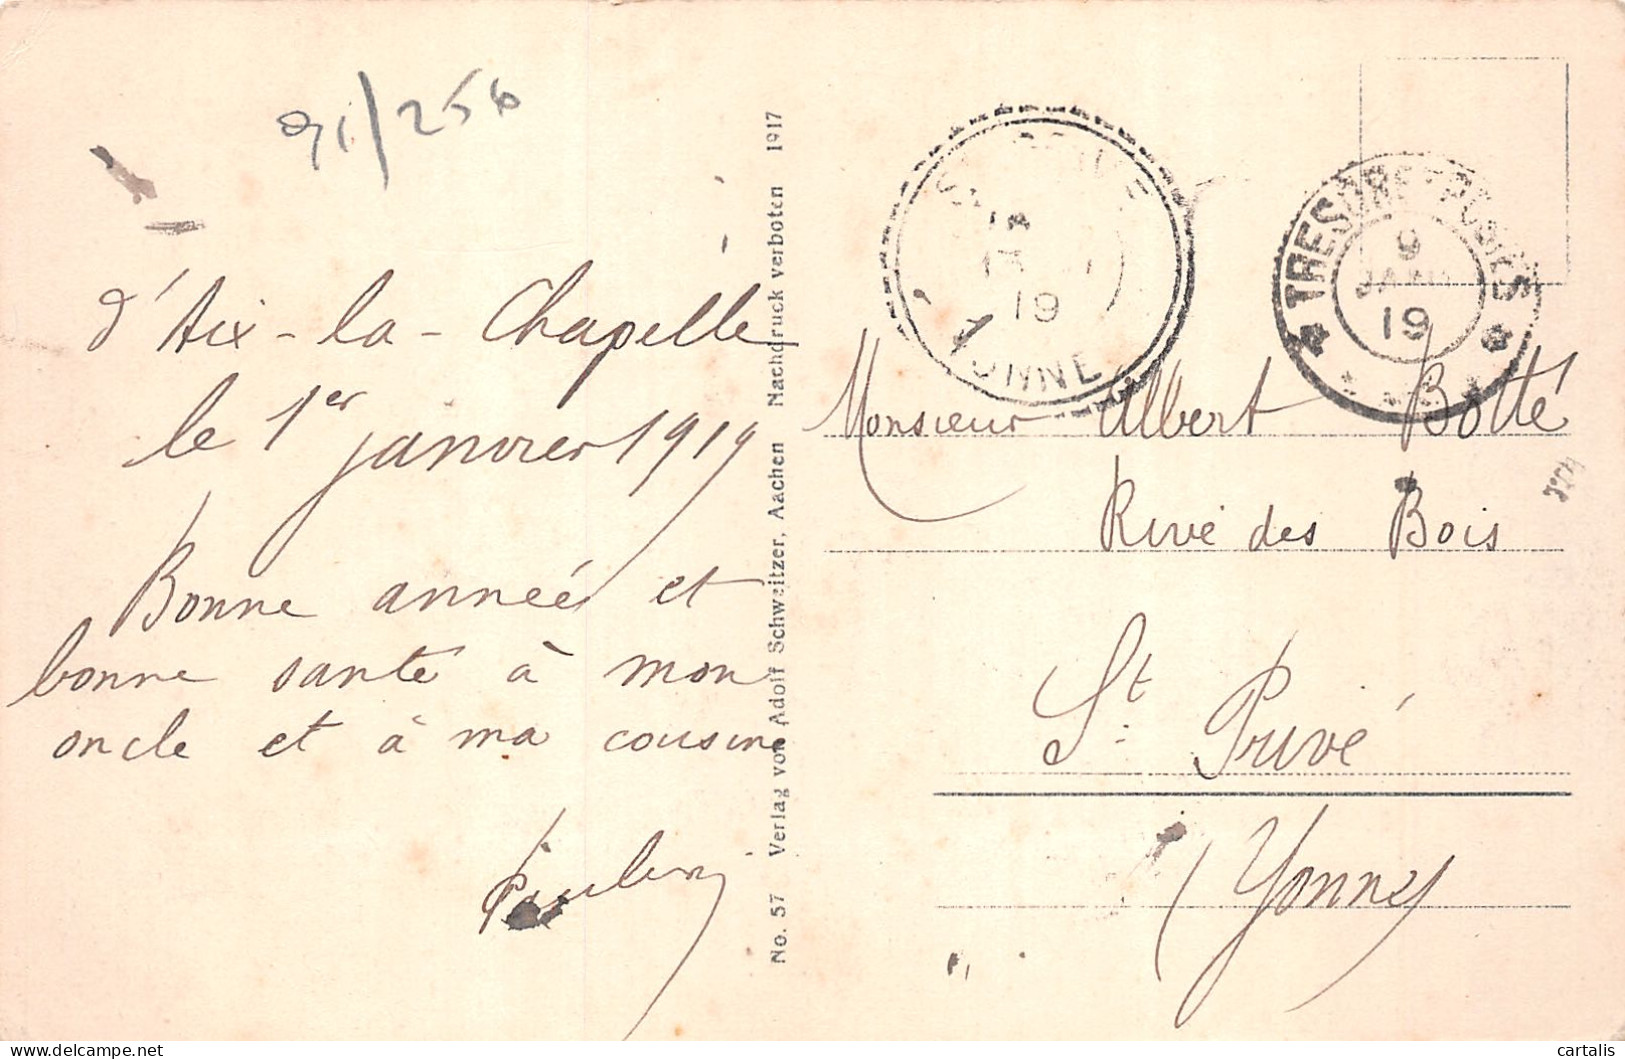 91/256
d'Aix-la-Chapelle
le 1er janvier 1919
Bonne année et
bonne santé à mon
oncle et à ma cousine
No. 57 Verlag von Adolf Schweitzer, Aachen Nachdruck verboten 1917
19
YONNE
TRESOR ET POSTES
9
JANV
19
Monsieur Albert Botté
Rive des Bois
St. Privé
(Yonne)
cartalis